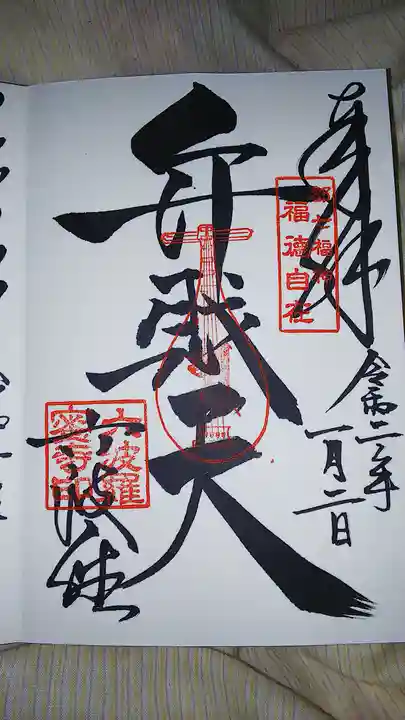 奉拝
都七福神
福徳自在
令和二年
一月二日
弁財天
六波羅
蜜寺印
六波